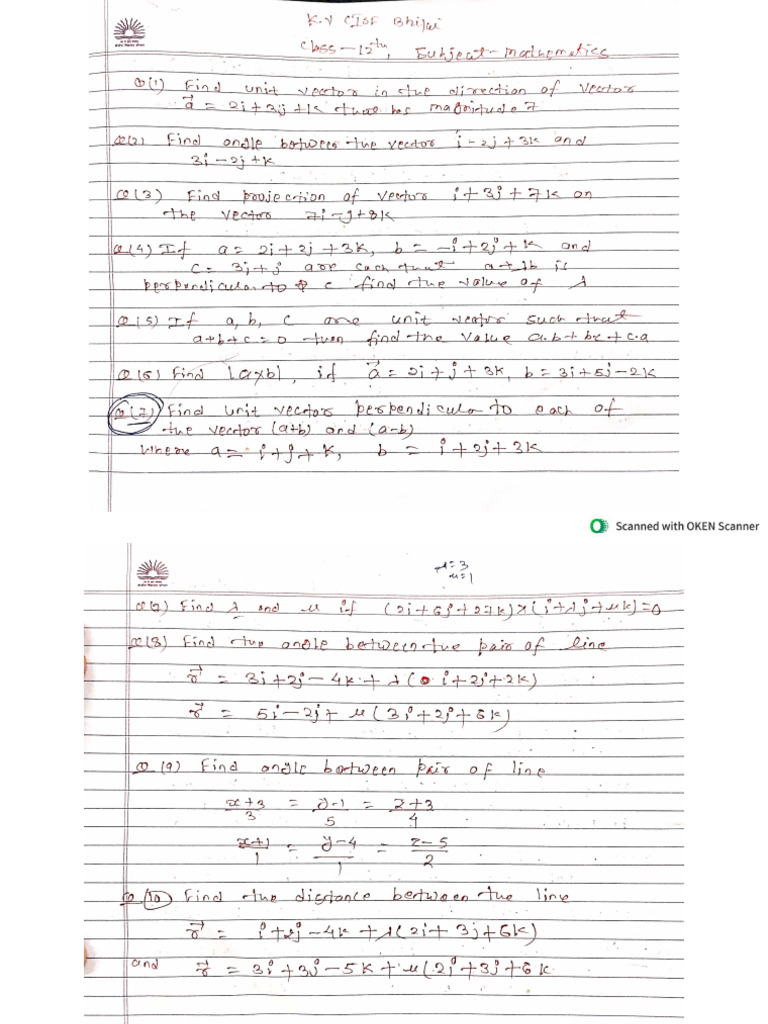 K.V CISF Bhilai
Class - 12th, Subject - mathematics
Q(1) Find unit vector in the direction of vector
a⃗ = 2i + 3j + k that has magnitude 7
Q(2) Find angle between the vector i - 2j + 3k and
3i - 2j + k
Q(3) Find projection of vector i + 3j + 7k on
the vector 7i - j + 8k
Q(4) If a = 2i + 2j + 3k, b = -i + 2j + k and
c = 3i + j are such that a + λb is
perpendicular to c find the value of λ
Q(5) If a, b, c are unit vector such that
a+b+c = 0 then find the value a.b + bc + c.a
Q(6) Find |axb|, if a⃗ = 2i + j + 3k, b = 3i + 5j - 2k
Q(7) Find unit vector perpendicular to each of
the vector (a+b) and (a-b)
where a = i + j + k, b = i + 2j + 3k
Scanned with OKEN Scanner
λ = 3
u = 1
Find λ and μ if (2i + 6j + 27k) x (i + λj + μk) = 0
Q(8) Find the angle between the pair of line
r⃗ = 3i + 2j - 4k + λ( i + 2j + 2k)
r⃗ = 5i - 2j + μ(3i + 2j + 6k)
Q(9) Find angle between pair of line
x+3/3 = y-1/5 = z+3/4
x+1/1 = y-4/1 = z-5/2
Q(10) Find the distance between the line
r⃗ = i + 2j - 4k + λ(2i + 3j + 6k)
and r⃗ = 3i + 3j - 5k + μ(2i + 3j + 6k